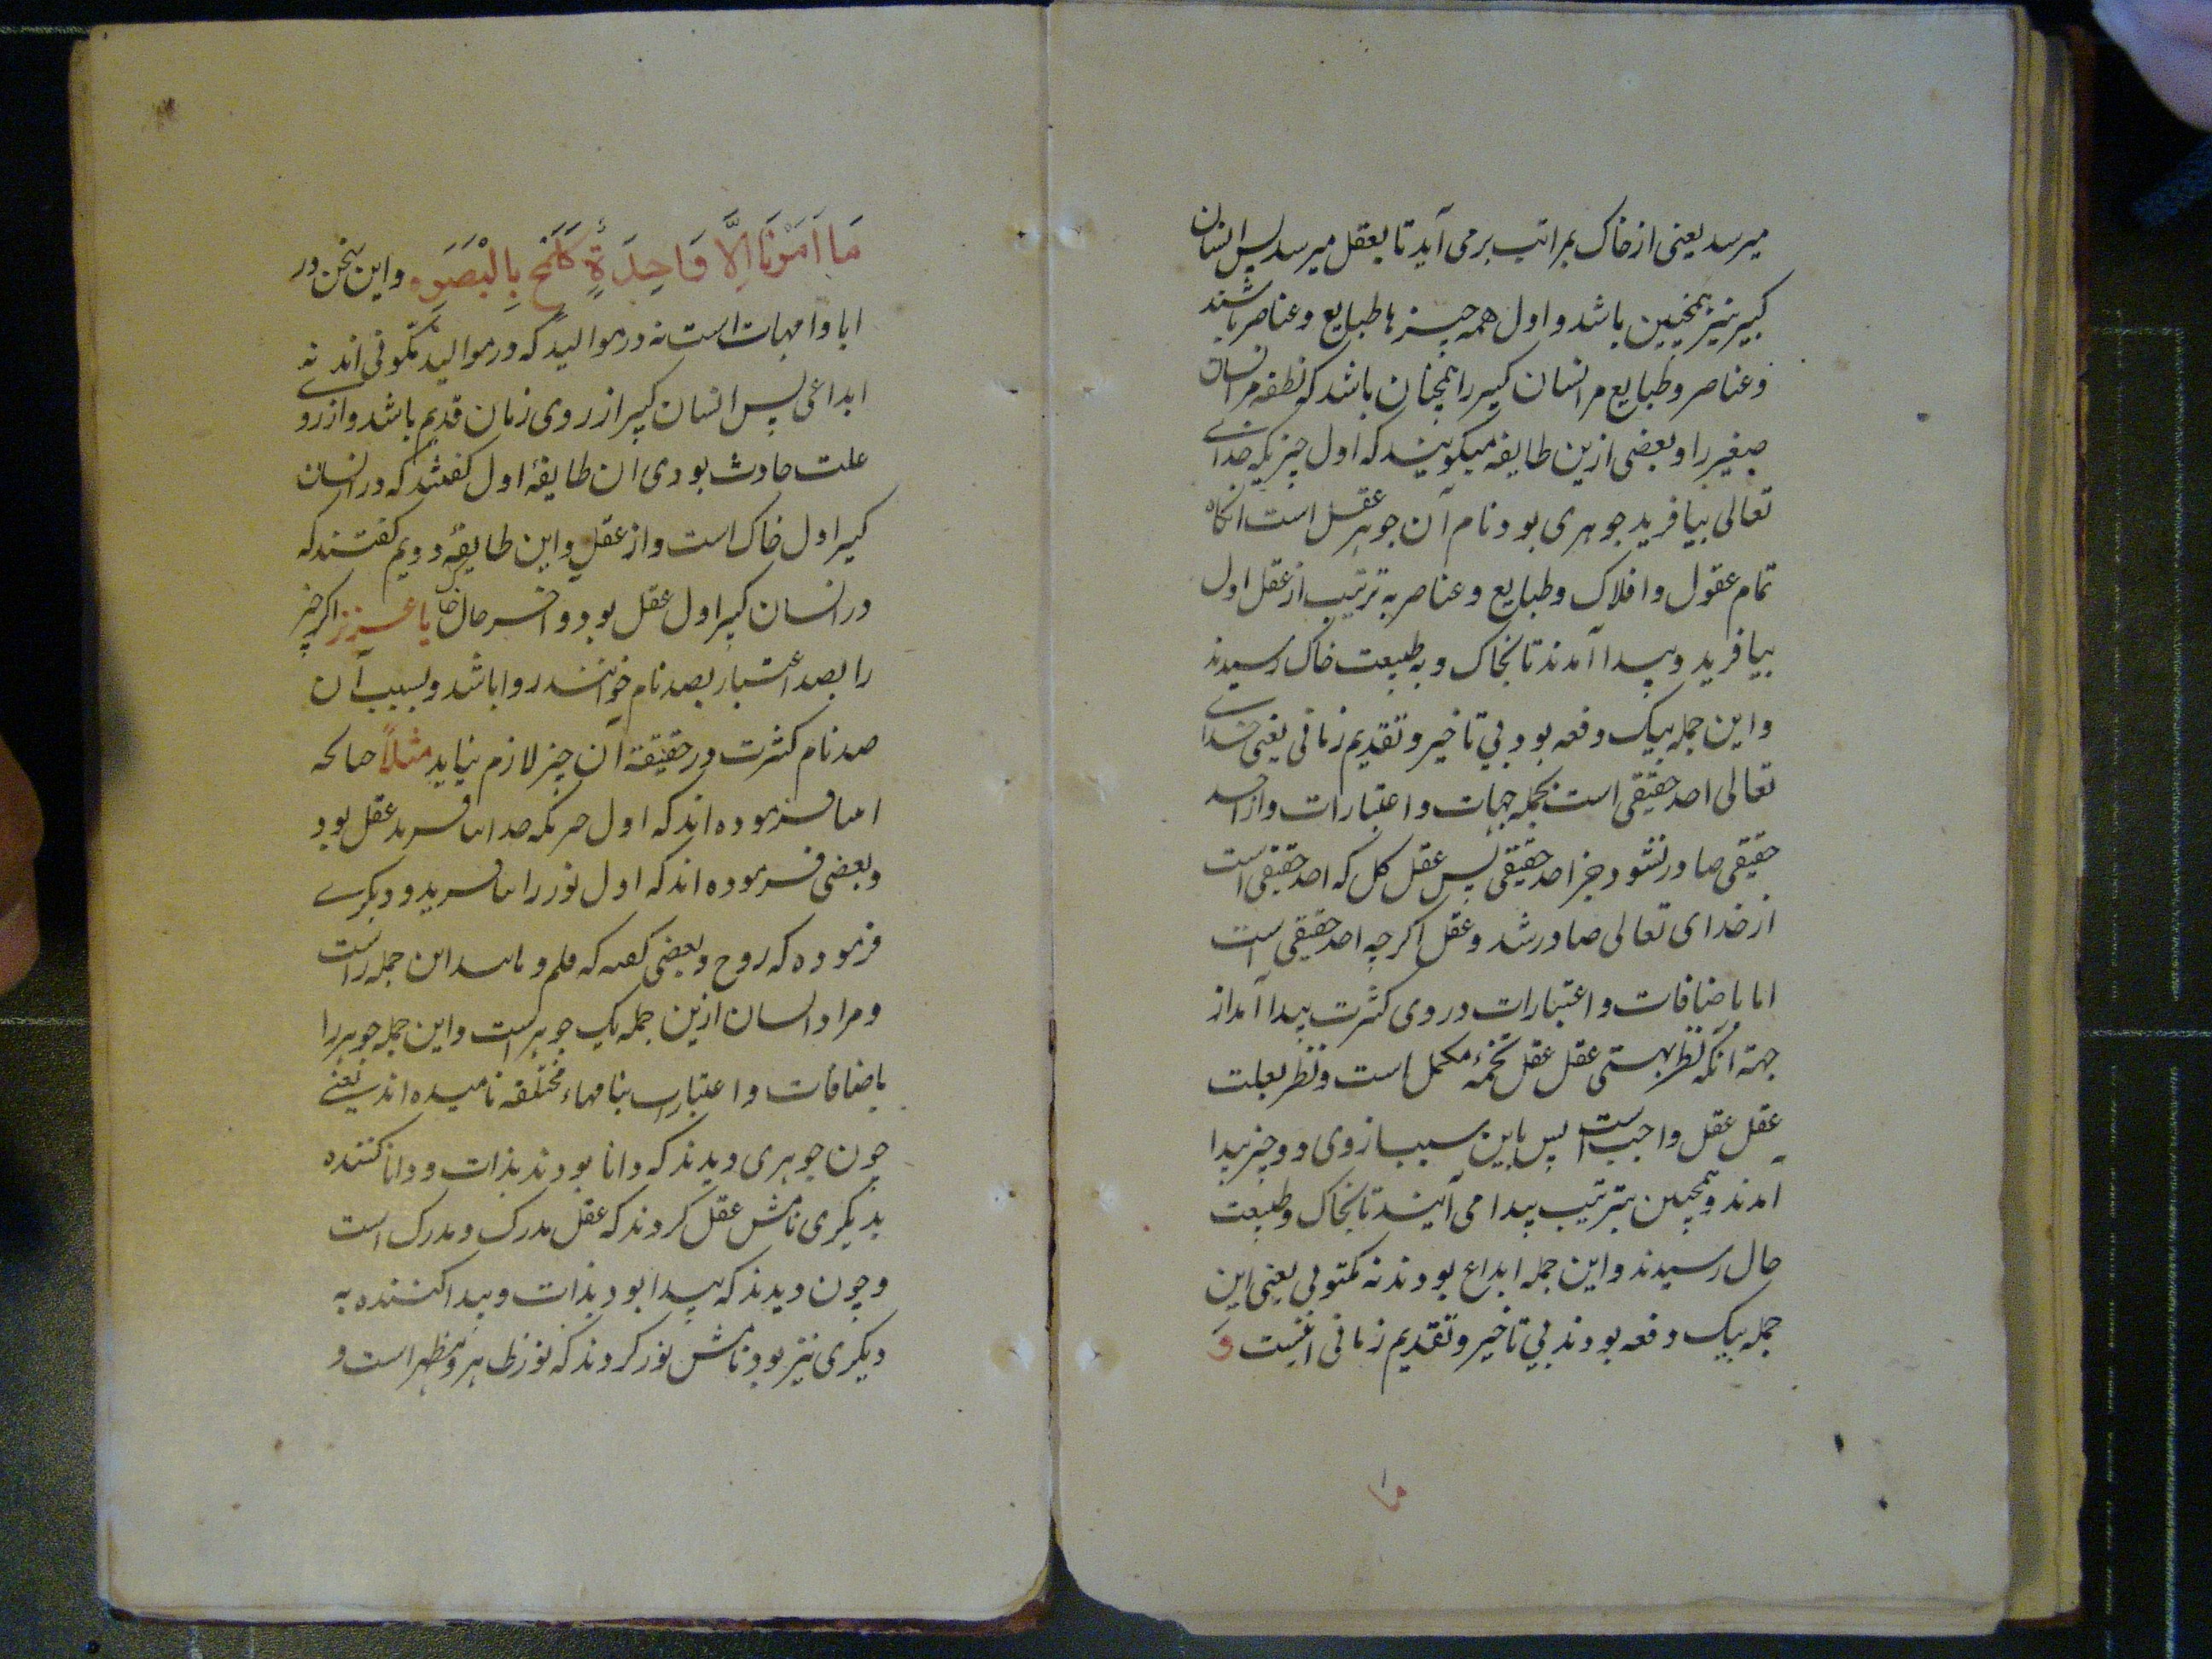 میرسد یعنی از خاک بمراتب برمی آید تا بعقل میرسد پس انسان
کبیر نیز همچنین باشد و اول همه چیزها طبایع و عناصر باشند
و عناصر و طبایع مر انسان کبیر را همچنان باشد که نطفه مر انسان
صغیر را و بعضی ازین طایفه میکویند که اول چیزیکه خدای
تعالی بیافرید جوهری بود نام آن جوهر عقل است انکاه
تمام عقول و افلاک و طبایع و عناصر به ترتیب از عقل اول
بیافرید و پیدا آمدند تا بخاک و به طبیعت خاک رسیدند
و این جمله بیک دفعه بود بی تاخیر و تقدیم زمانی یعنی خدای
تعالی احد حقیقی است بجمله جهات و اعتبارات و از احد
حقیقی صادر نشود جز احد حقیقی پس عقل کل که احد حقیقی است
از خدای تعالی صادر شد و عقل اکرچه احد حقیقی است
اما باضافات و اعتبارات در وی کثرت پیدا آمد از
جهة آنکه نظر بهستی عقل عقل مکمل است و نظر بعلت
عقل عقل واجب است پس باین سبب از وی دو چیز پیدا
آمدند و همچنین بترتیب پیدا می آیند تا بخاک و طبیعت
خاک رسیدند و این جمله ابداع بودند نه یعنی این
جمله بیک دفعه بودند بی تاخیر و تقدیم زمانی اینست وَ
ما
مَا اَمْرُنَا اِلَّا وَاحِدَةٌ كَلَمْحٍ بِالْبَصَرِ و این سخن در
ابا و امهات است نه در موالید که در موالید تکونی اند نه
ابداعی پس انسان کبیر از روی زمان قدیم باشد و از روی
علت حادث بودی ان طایفۀ اول کفتند که در انسان
کبیر اول خاک است و از عقل و این طایفۀ دویم کفتند که
در انسان کبیر اول عقل بود و اخر خاک یا عزیز اکر چیز
را بصد اعتبار بصد نام خوانند روا باشد و بسبب آن
صد نام کثرت در حقیقة آن چیز لازم نیاید مثلاً
فرموده اند که اول عقل بود
و بعضی فرموده اند که اول نور را بیافرید و دیکری
فرموده که روح و بعضی کفته که قلم و این جمله راست
و مراد انسان ازین جمله یک جوهر است و این جمله جوهر را
باضافات و اعتبارات بنامهاء مختلفه نامیده اند یعنی
چون جوهری دیدند که دانا بودند بذات و دانا کننده
بدیکری نامش عقل کردند که عقل مدرک و مدرک است
و چون دیدند که پیدا بود بذات و پیدا کننده به
دیکری نیز بود نامش نور کردند که نور ظاهر و مظهر است و